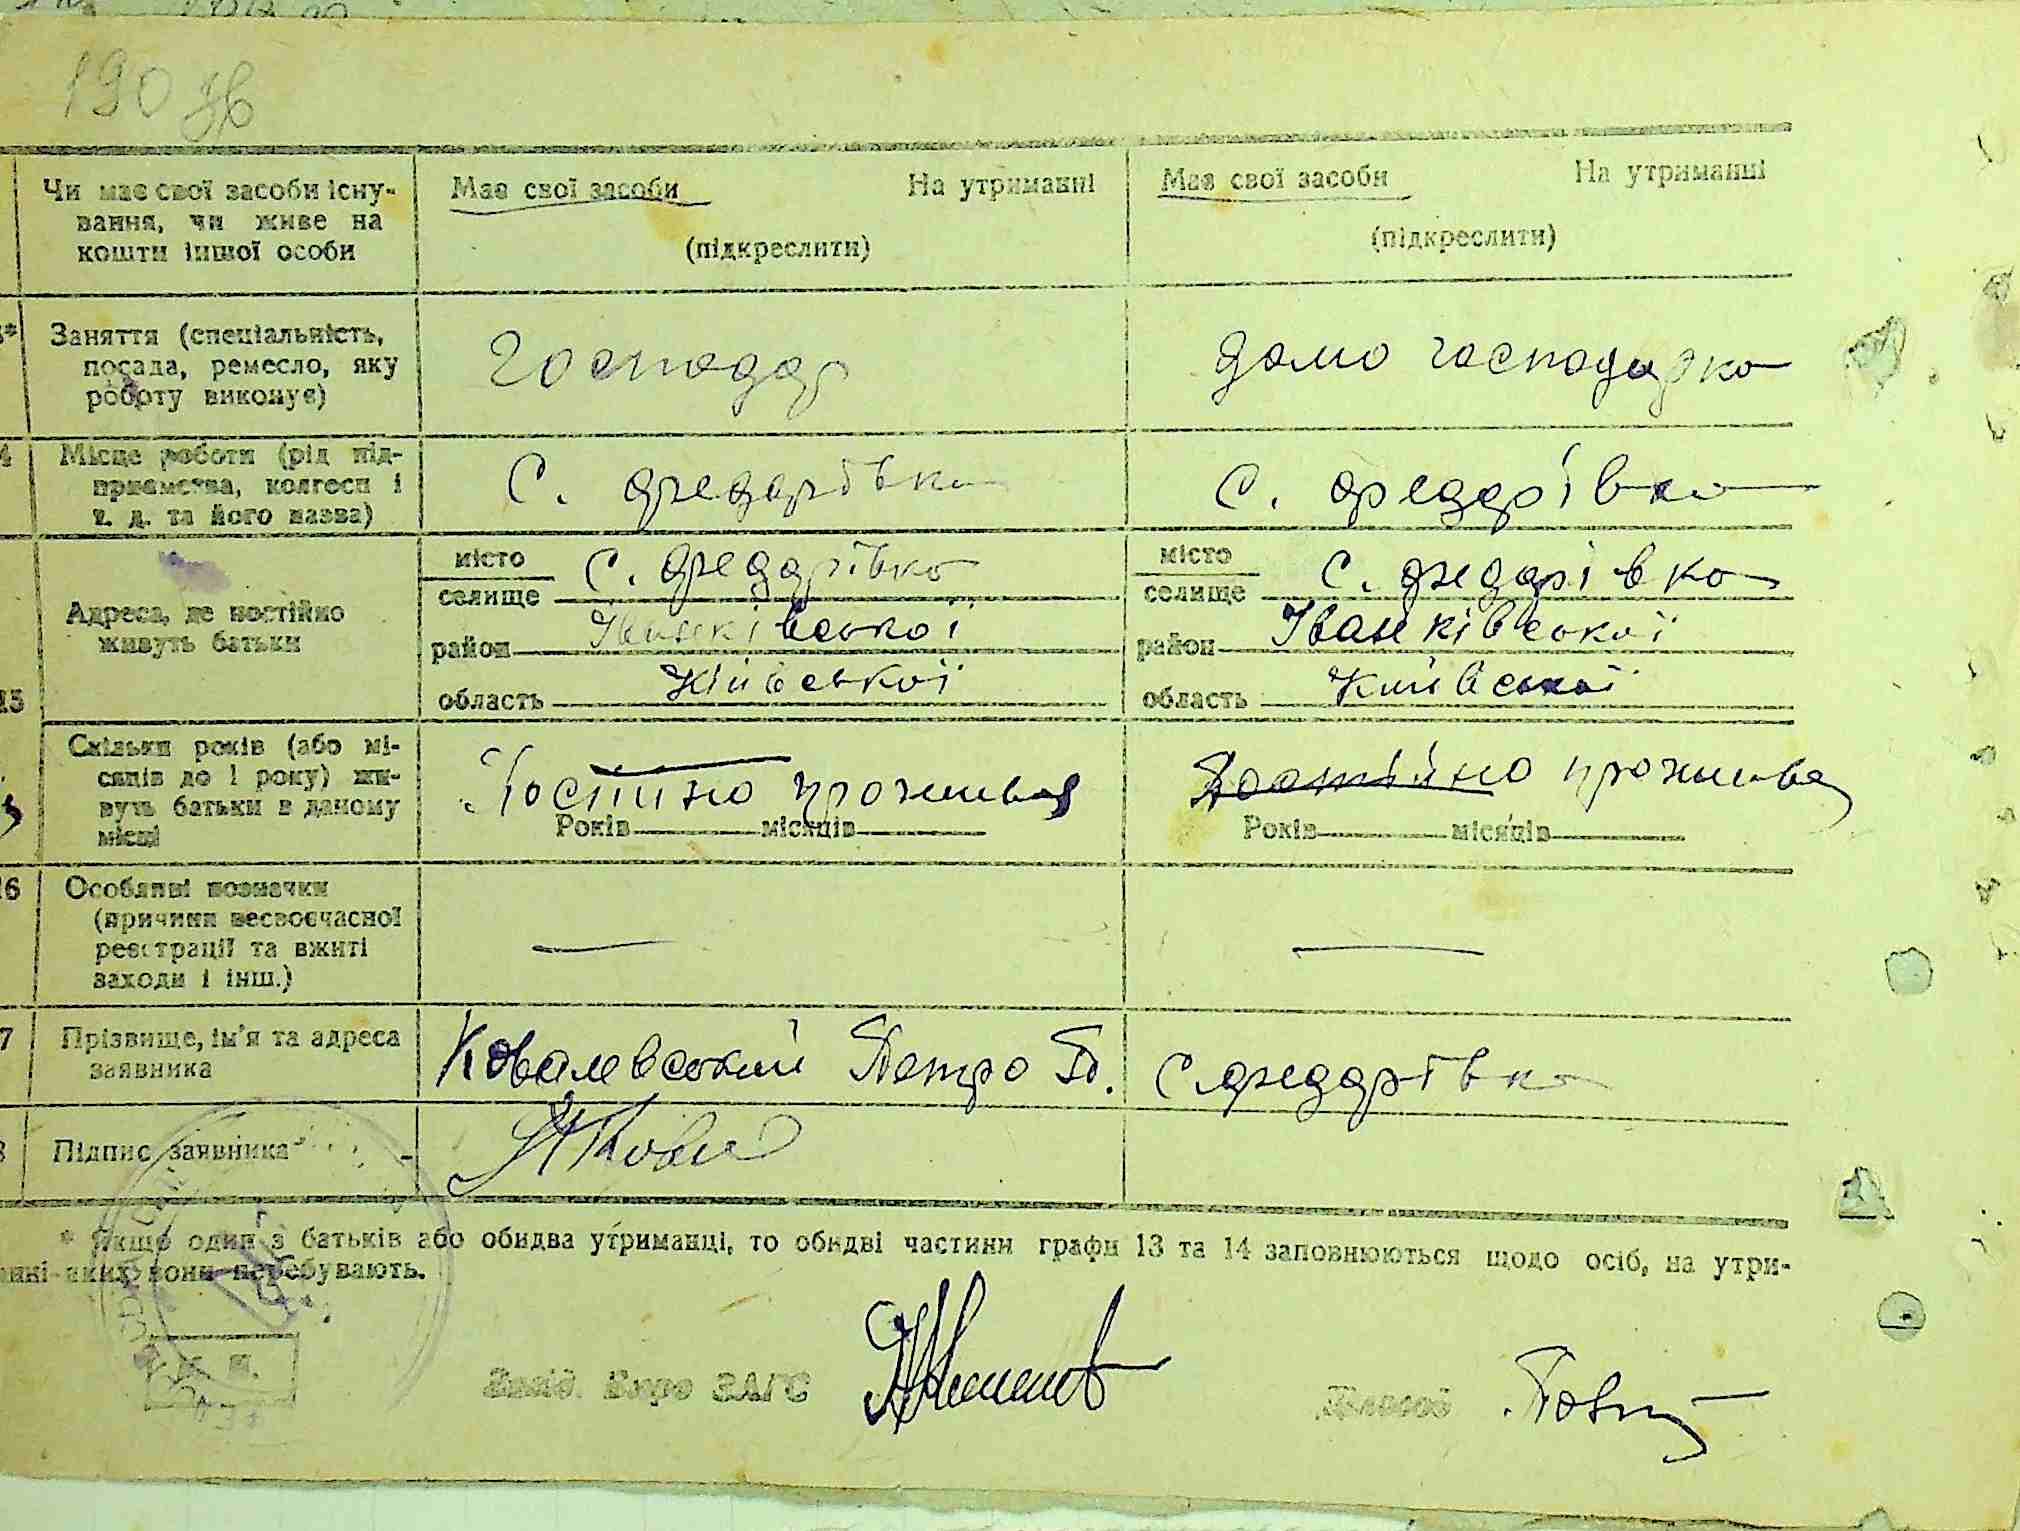 190 зв
Чи має свої засоби існу-
вання, чи живе на
кошти іншої особи
Має свої засоби На утриманні
(підкреслити)
Має свої засоби На утриманні
(підкреслити)
3* Заняття (спеціальність,
посада, ремесло, яку
роботу виконує)
Господар
домо господарка
4 Місце роботи (рід під-
приємства, колгосп і
т. д. та його назва)
с. Федорівка
с. Федорівка
15 Адреса, де постійно
живуть батьки
місто
селище
с. Федорівка
район Іванківської
область Київської
місто
селище
с. Федорівка
район Іванківської
область Київської
Скільки років (або мі-
сяців до 1 року) жи-
вуть батьки в даному
місці
Постіно проживає
Років місяців
Постійно проживає
Років місяців
16 Особливі позначки
(причини несвоєчасної
реєстрації та вжиті
заходи і інш.)
— —
7 Прізвище, ім'я та адреса
заявника
Ковалевський Петро П. с. Федорівка
8 Підпис заявника
* Якщо один з батьків або обидва утриманці, то обидві частини графи 13 та 14 заповнюються щодо осіб, на утри-
анні яких вони перебувають.
М. П.
Завід. Бюро ЗАГС